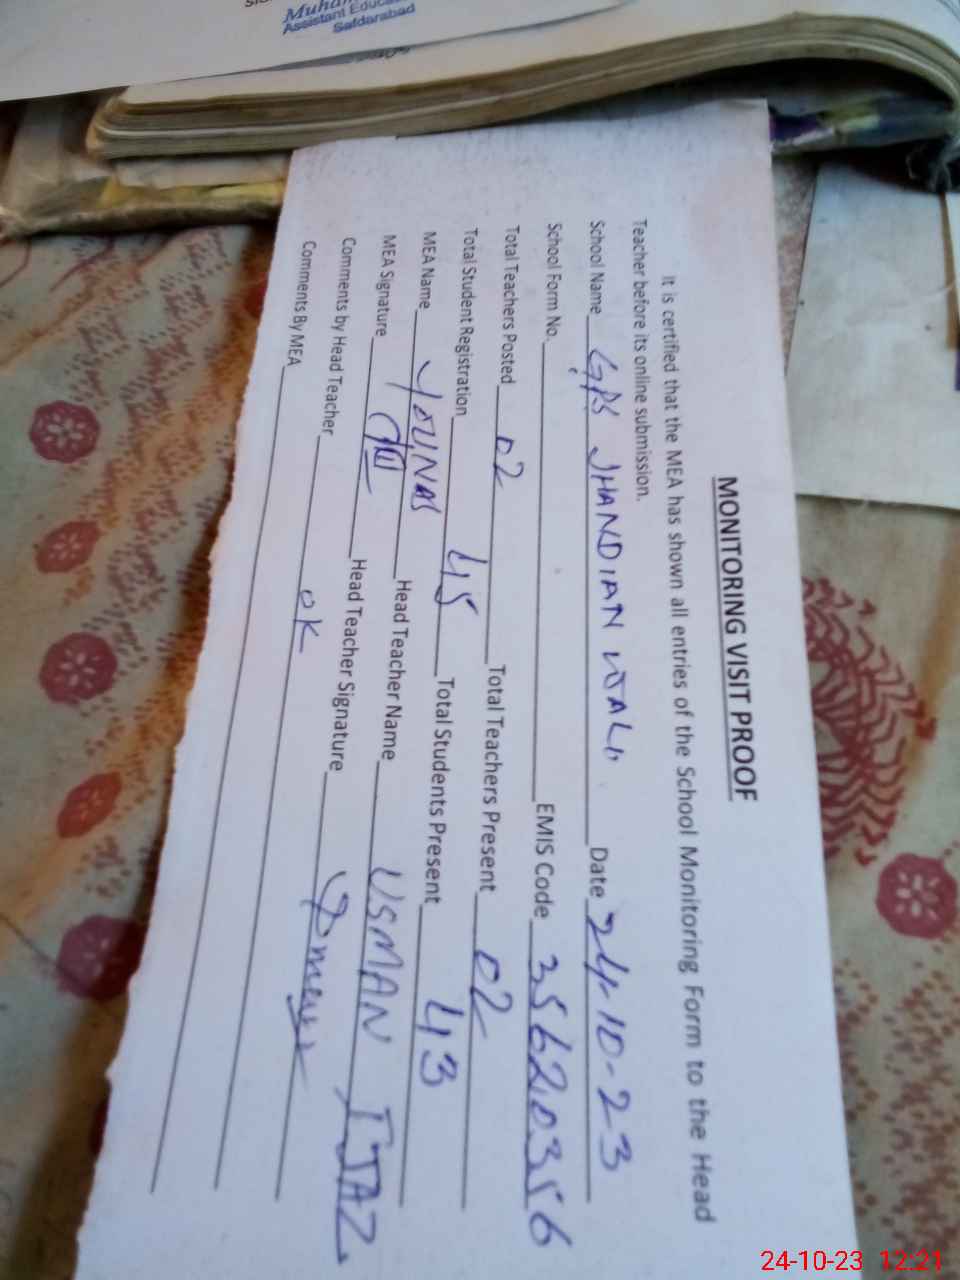 Assistant
Safdarabad
MONITORING VISIT PROOF
It is certified that the MEA has shown all entries of the School Monitoring Form to the Head
Teacher before its online submission.
School Name GPS JHANDIAN WALI Date 24-10-23
School Form No. EMIS Code 35620356
Total Teachers Posted 02 Total Teachers Present 02
Total Student Registration 45 Total Students Present 43
MEA Name YOUNAS Head Teacher Name USMAN IJAZ
MEA Signature Head Teacher Signature
Comments by Head Teacher OK
Comments By MEA
24-10-23 12:21